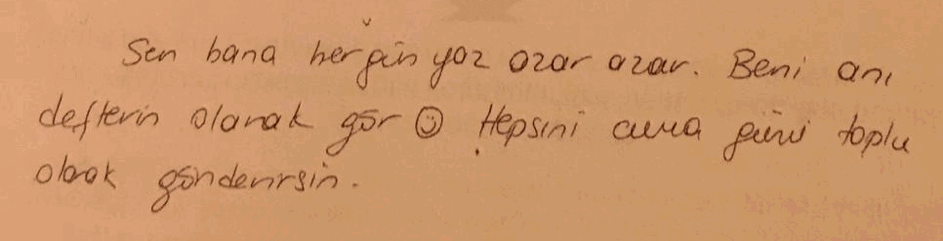 Sen bana hergün yaz azar azar. Beni anı
defterin olarak gör ☺ Hepsini cuma günü toplu
olarak gönderirsin.